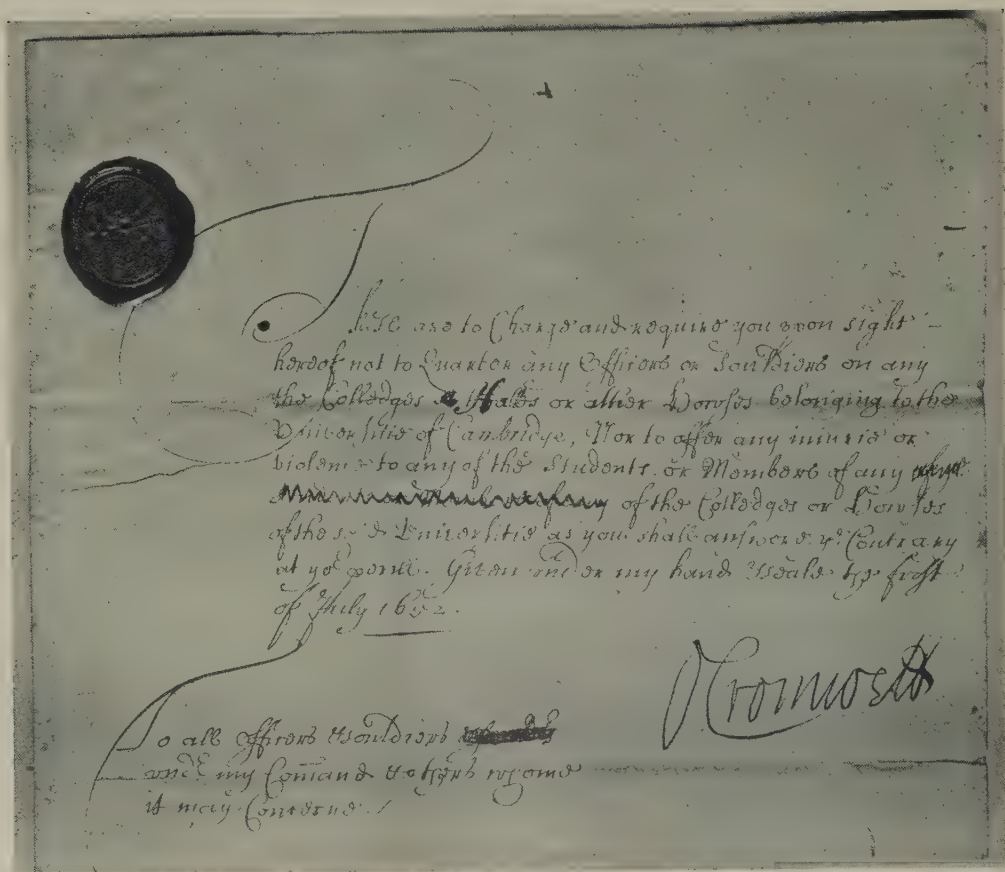 These are to Charge and require you upon sight
hereof not to Quarter any Officers or Souldiers on any
the Colledges Halls or other Howses belonging to the
Vniversitie of Cambridge, Nor to offer any iniurie or
violence to any of the Students or Members of any
of the Colledges or Howses
of the sd Vniversitie as you shall answere ye Contrary
at yor perill. Given vnder my hand & seale the first
of July 1652.
OCromwell
To all Officers & Souldiers
vnder my Comand & others whome
it may Concerne /